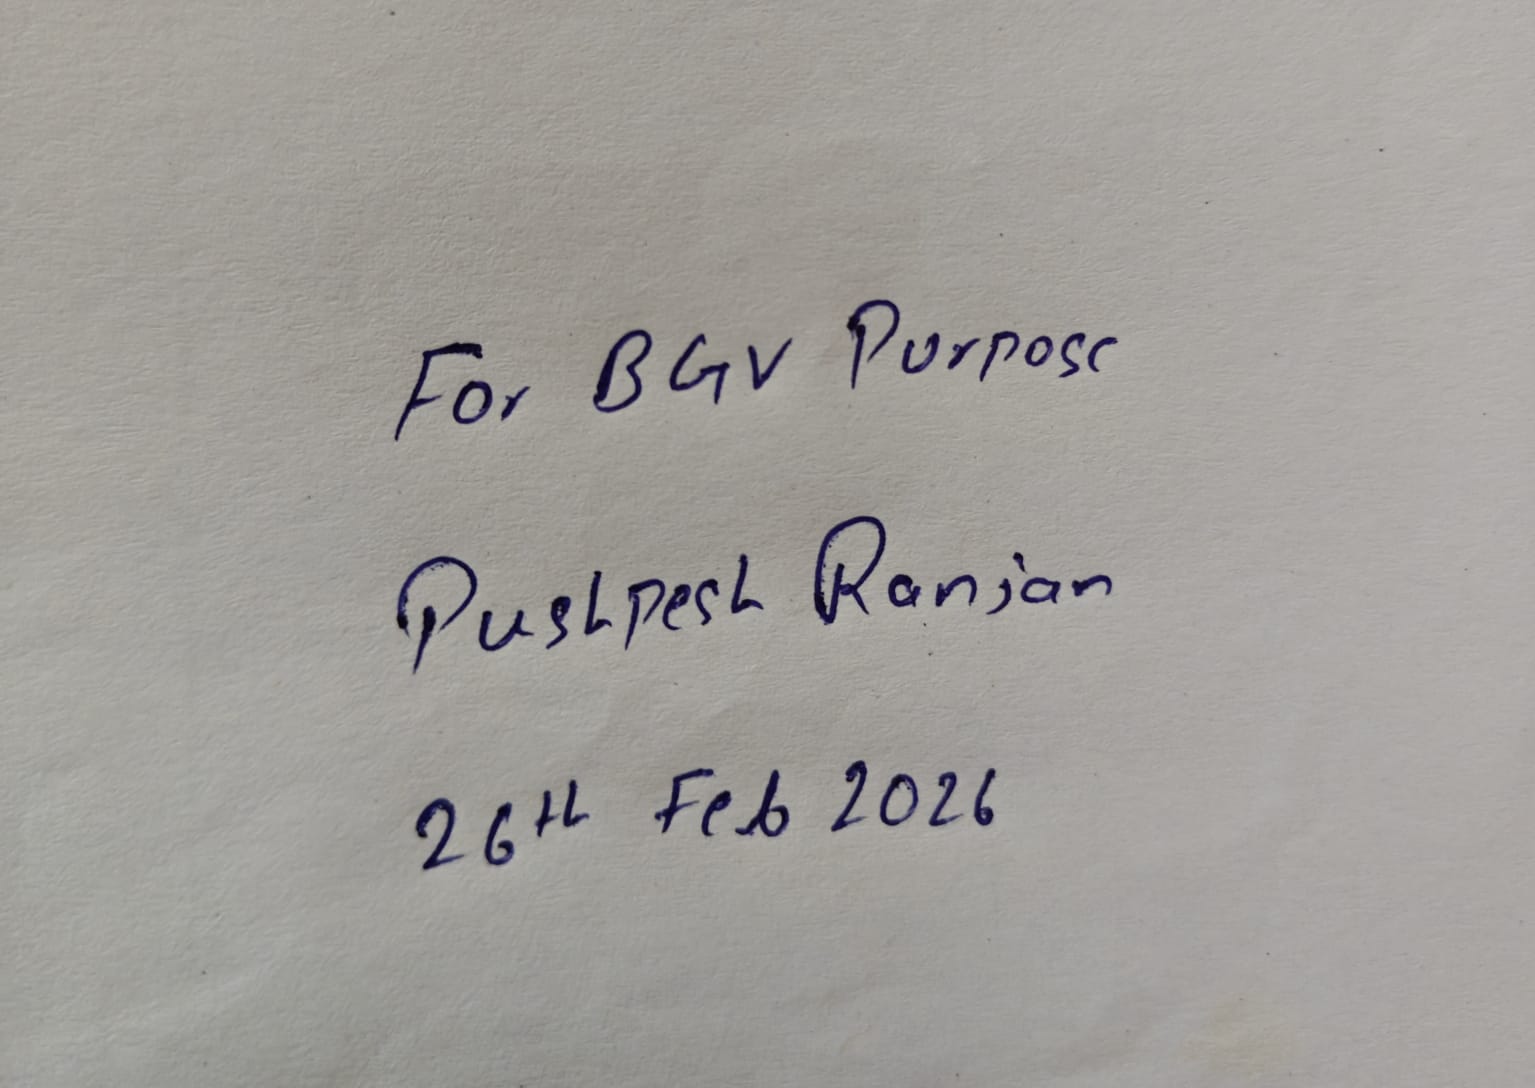 For BGV Purpose
Pushpesh Ranjan
26th Feb 2026